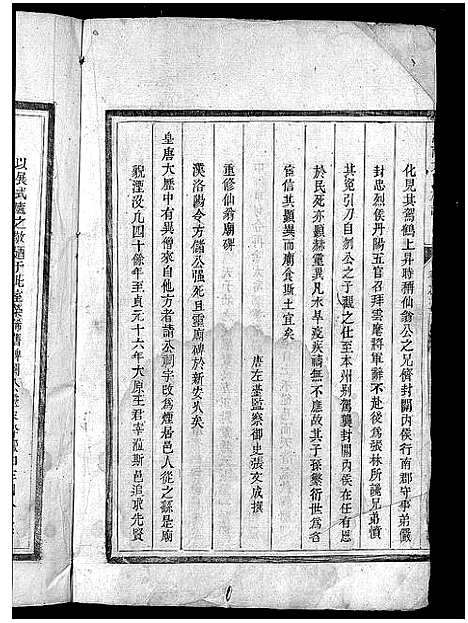 化見其駕鶴上昇時稱仙翁公之兄儕封關內侯行南郡守事弟儼
封忠烈侯丹陽五官召拜雲麾將軍辭不赴後爲張林所譖兄弟憤
其冤引刀自刎公之子觀之仕至本州別駕襲封關內侯在任有恩
於民死亦顯赫靈異凡水旱疫疾禱無不應故其子孫繁衍世爲名
宦信其顯異而廟食斯土宜矣
唐左臺監察御史張文成撰
重修仙翁廟碑
漢洛陽令方儲公强死且靈廟碑於新安久矣
皇唐大歷中有異僧來自他方者請公祠宇改爲煙居邑人從之繇是廟
祝湮沒凡四十餘年至貞元十六年大原王君宰涖斯邑追求先賢
以展式廬之敬廼于此室